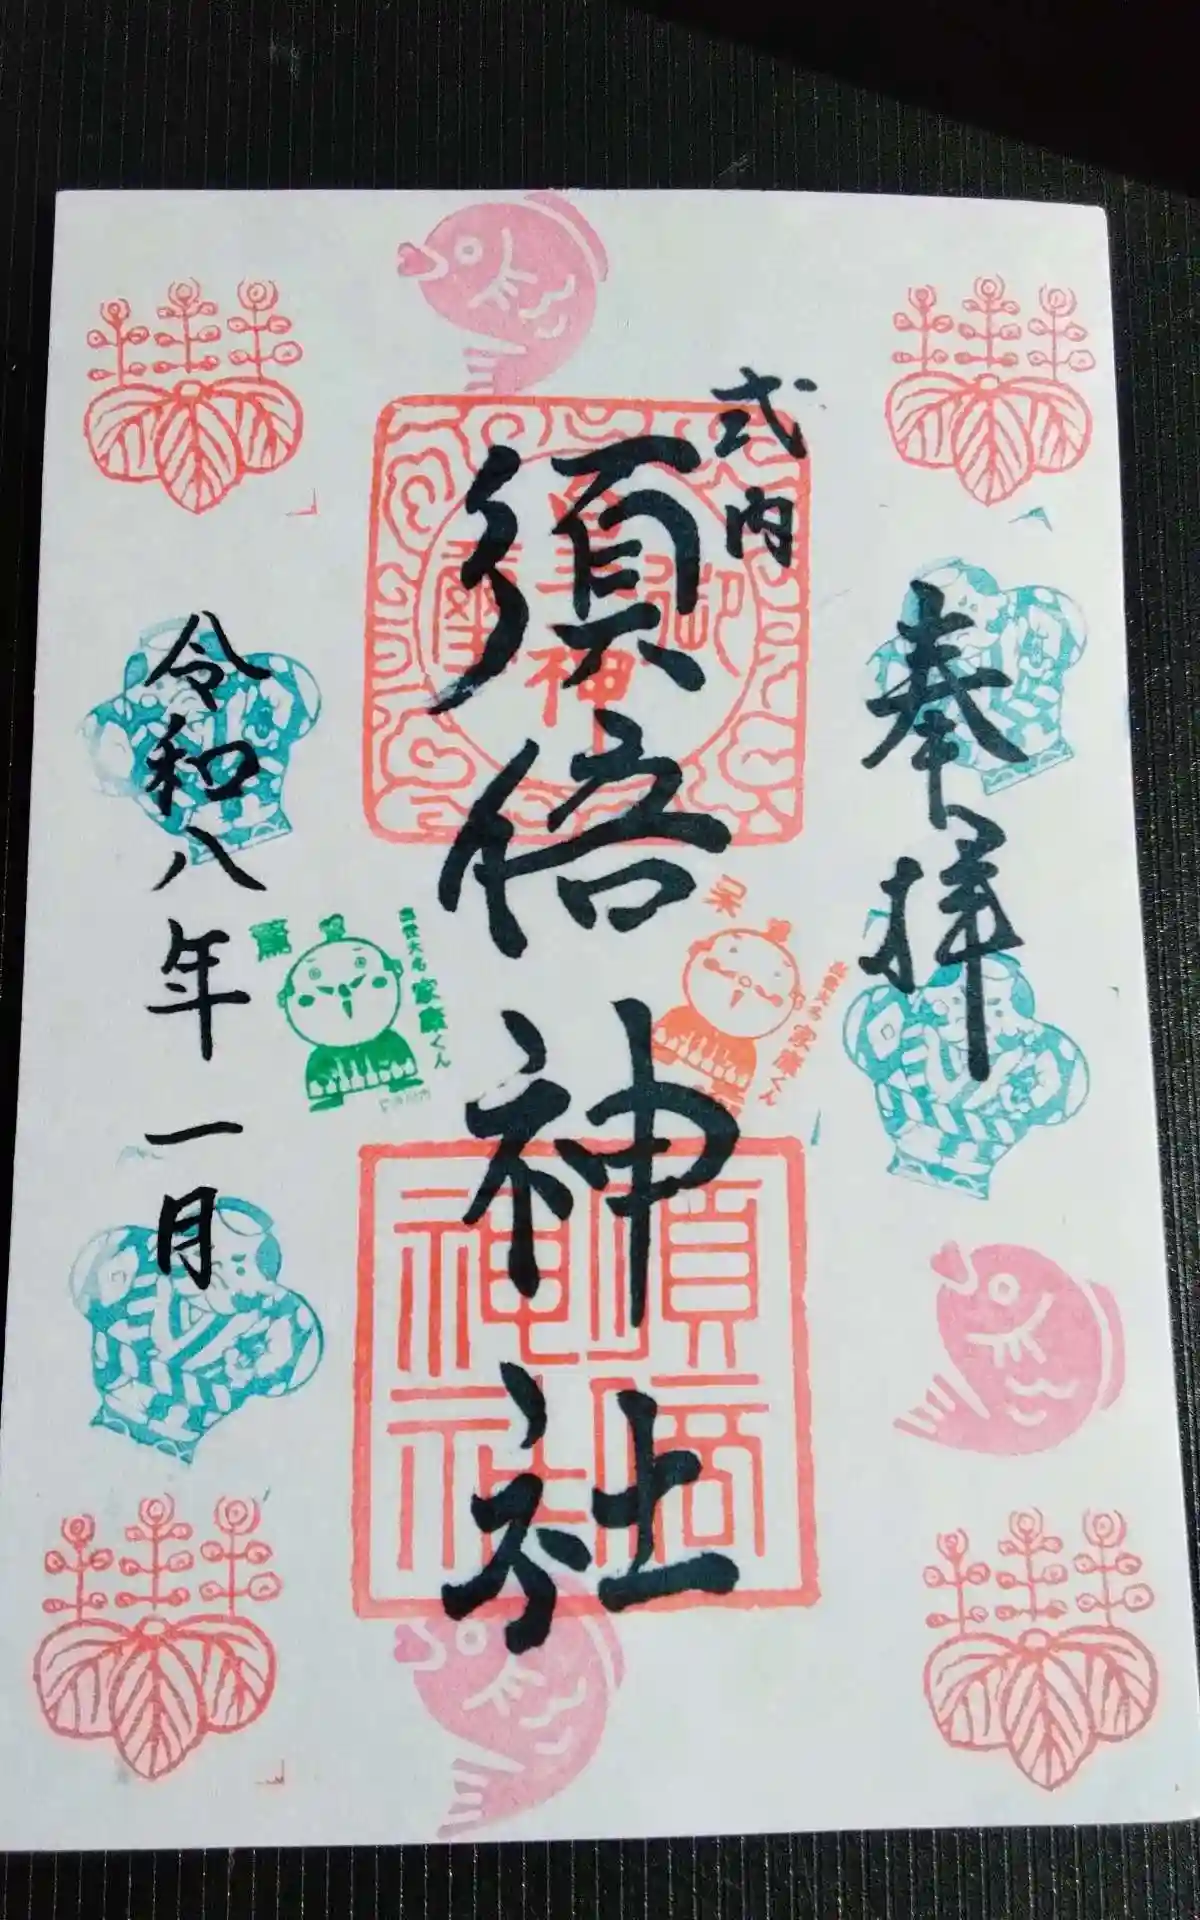 奉拝
式内
須倍神社
令和八年一月
呆
出世大名家康くん
驚
出世大名家康くん
須倍
神社